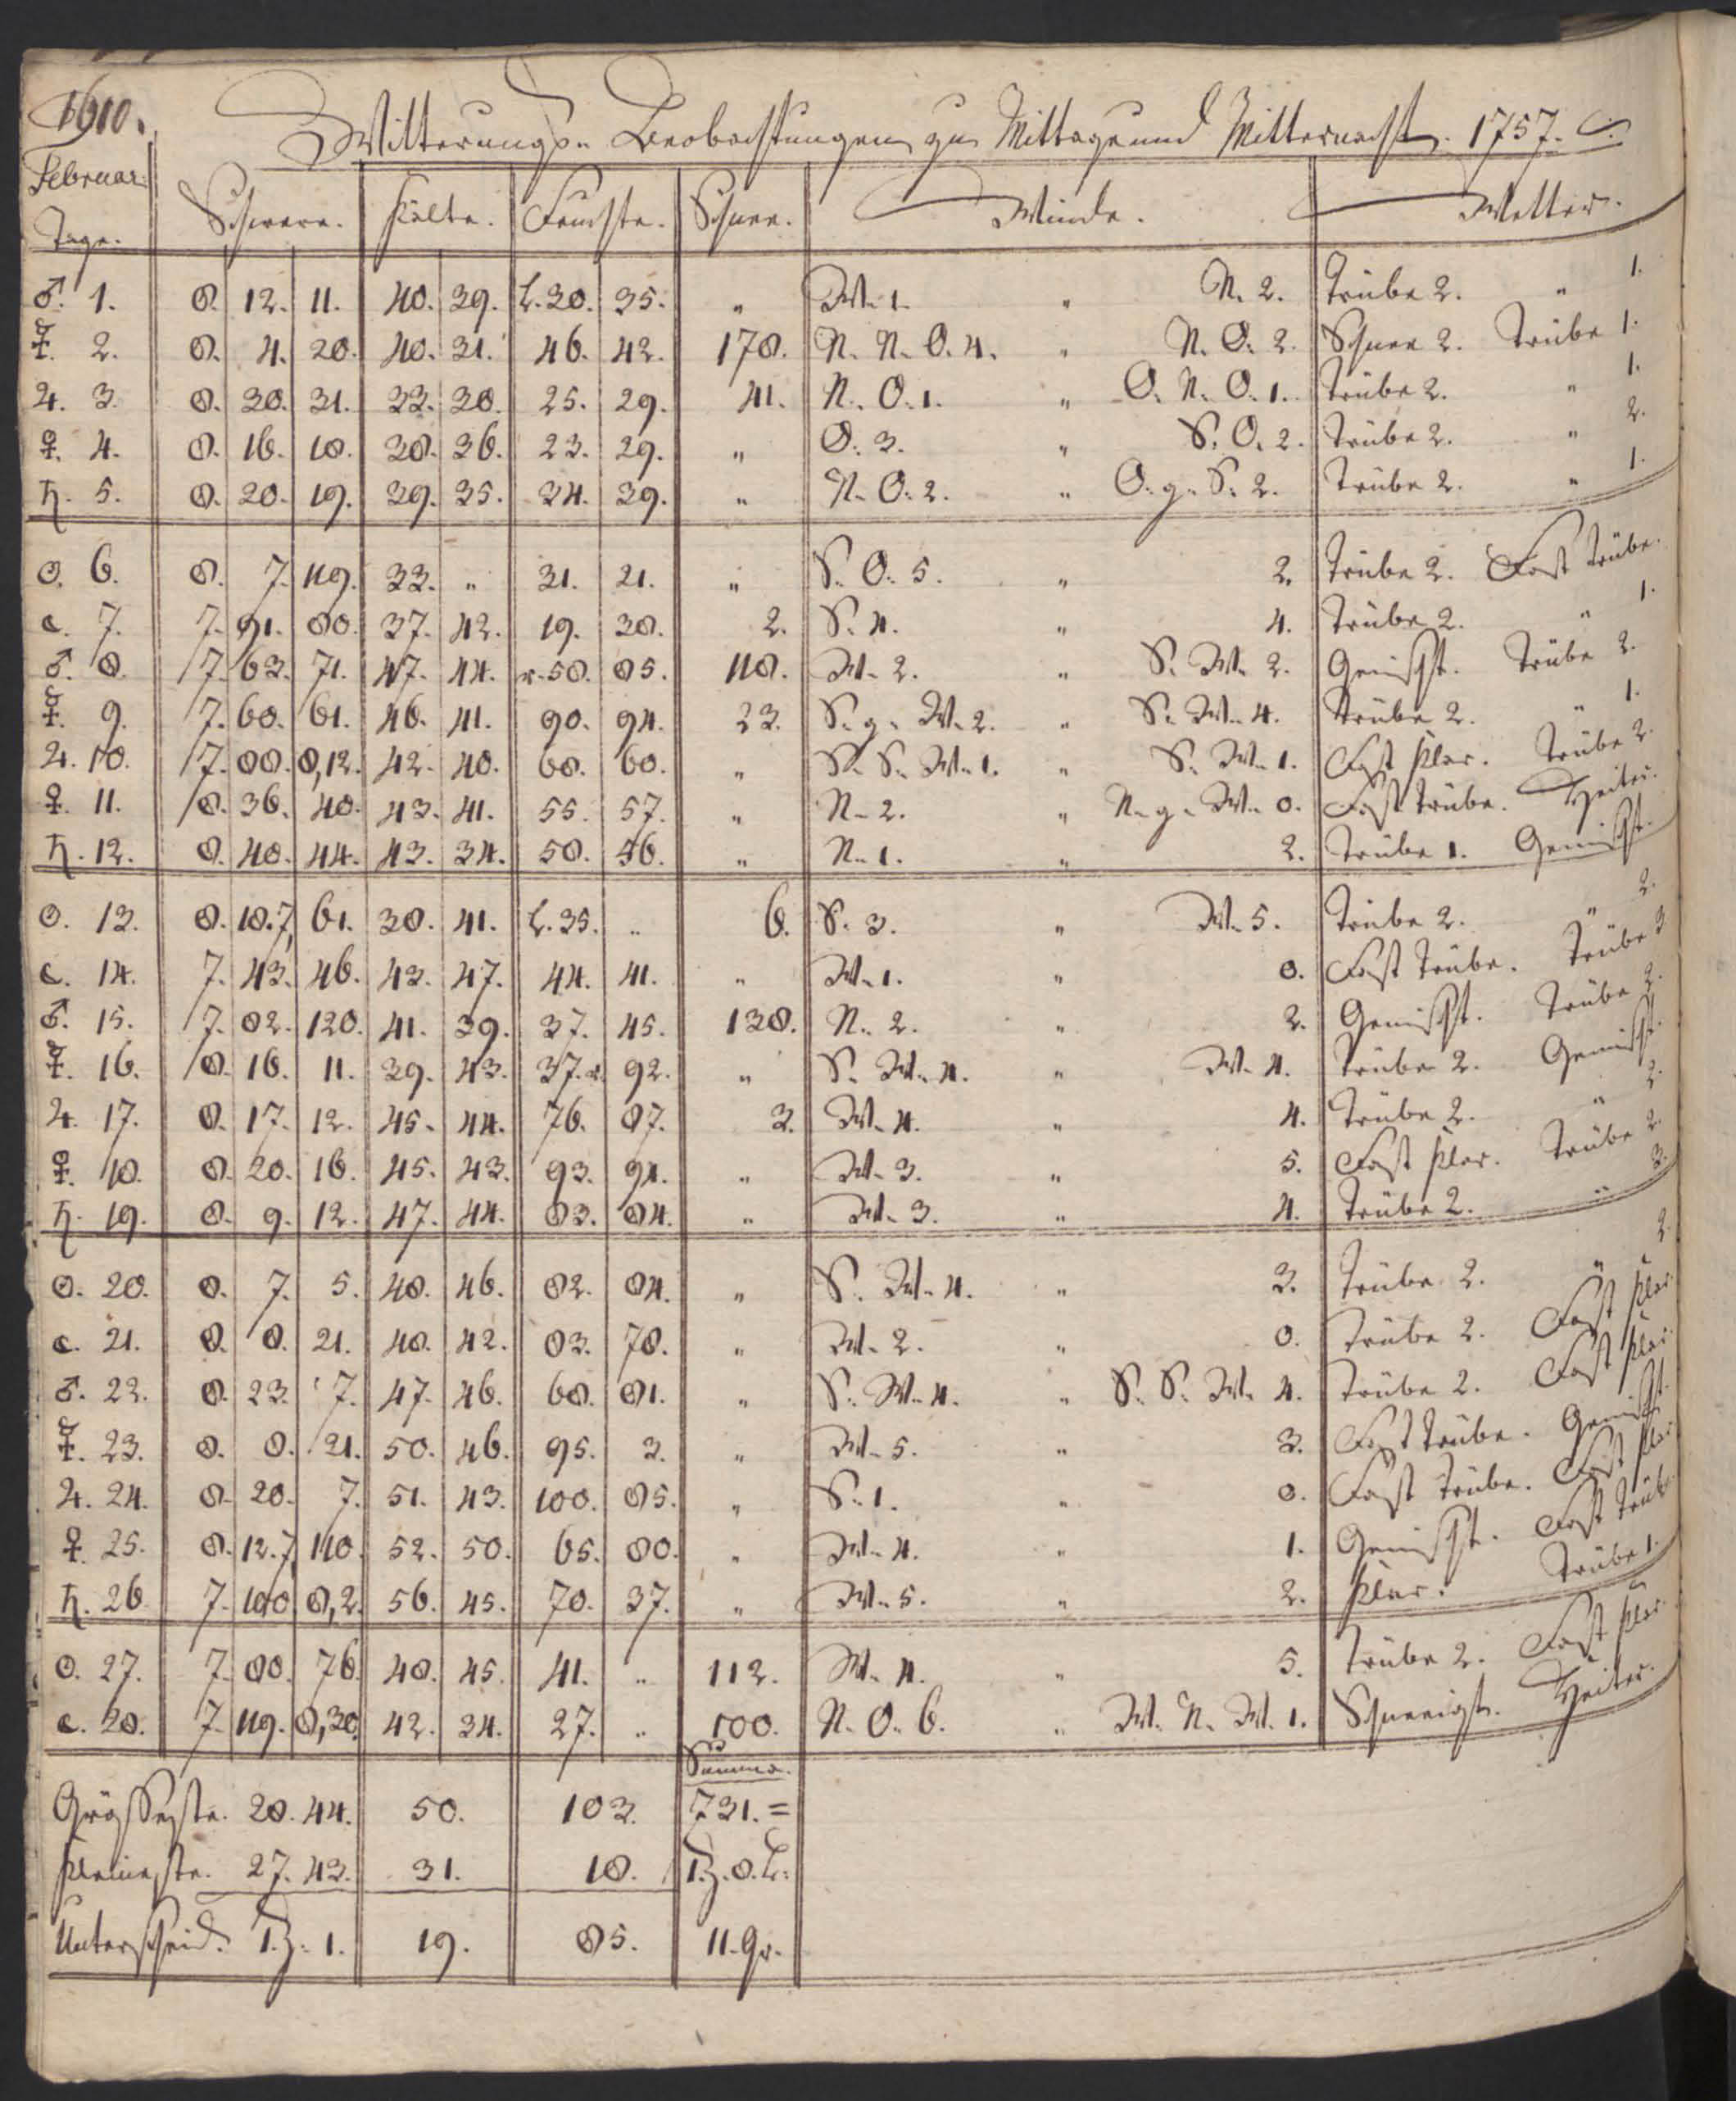 1610.
Witterungs- Beobachtungen zu Mittage und Mitternacht. 1757.
Februar: Tage. Schwere. Kälte. Feuchte. Schnee. Winde. Wetter.
♂. 1. 8. 12. 11. 40. 39. L.38. 35. " W. 1. " N. 2. Trübe 2. " 1.
☿. 2. 8. 4. 20. 40. 31. 46. 42. 178. N. N. O. 4. " N. O. 2. Schnee 2. Trübe 1.
♃. 3. 8. 30. 31. 33. 38. 25. 29. 41. N. O. 1. " O. N. O. 1. Trübe 2. " 1.
♀. 4. 8. 16. 18. 38. 36. 23. 29. " O. 3. " S. O. 2. Trübe 2. " 2.
♄. 5. 8. 20. 19. 39. 35. 34. 39. " N. O. 2. " O. g. S. 2. Trübe 2. " 1.
☉. 6. 8. 7. 119. 33. " 31. 21. " S. O. 5. " 2. Trübe 2. Fast Trübe.
☾. 7. 7. 91. 80. 37. 42. 19. 38. 2. S. 4. " 4. Trübe 2. " 1.
♂. 8. 7. 63. 71. 47. 44. r.58. 85. 118. W. 2. " S. W. 2. Gemischt. Trübe 2.
☿. 9. 7. 60. 61. 46. 41. 90. 94. 23. S. g. W. 2. " S. W. 4. Trübe 2. " 1.
♃. 10. 7. 88. 8,12. 42. 40. 68. 60. " S. S. W. 1. " S. W. 1. Fast klar. Trübe 2.
♀. 11. 8. 36. 40. 43. 41. 55. 57. " N. 2. " N. g. W. 0. Fast trübe. Heiter.
♄. 12. 8. 40. 44. 43. 34. 50. 56. " N. 1. " 2. Trübe 1. Gemischt.
☉. 13. 8. 18. 7, 61. 38. 41. L.35. " 6. S. 3. " W. 5. Trübe 2. " 2.
☾. 14. 7. 43. 46. 43. 47. 44. 41. " W. 1. " 0. Fast Trübe. Trübe 3
♂. 15. 7. 82. 120. 41. 39. 37. 45. 138. N. 2. " 2. Gemischt. Trübe 2.
☿. 16. 8. 16. 11. 39. 43. 37. r. 92. " S. W. 4. " W. 4. Trübe 2. Gemischt.
♃. 17. 8. 17. 12. 45. 44. 76. 87. 3. W. 4. " 4. Trübe 2. " 2.
♀. 18. 8. 20. 16. 45. 43. 93. 94. " W. 3. " 5. Fast klar. Trübe 2.
♄. 19. 8. 9. 12. 47. 44. 83. 84. " W. 3. " 4. Trübe 2. " 3.
☉. 20. 8. 7. 5. 48. 46. 82. 84. " S. W. 4. " 3. Trübe 2. " 2.
☾. 21. 8. 8. 21. 48. 42. 83. 78. " W. 2. " 0. Trübe 2. Fast klar.
♂. 22. 8. 23. 7. 47. 46. 68. 81. " S. W. 4. " S. S. W. 4. Trübe 2. Fast klar.
☿. 23. 8. 8. 21. 50. 46. 95. 3. " W. 5. " 3. Fast trübe. Gemischt.
♃. 24. 8. 20. 7. 51. 43. 100. 85. " S. 1. " 0. Fast Trübe. Fast klar
♀. 25. 8. 12. 7, 110. 52. 50. 65. 80. " W. 4. " 1. Gemischt. Fast trübe
♄. 26. 7. 100. 8,2. 56. 45. 70. 37. " W. 5. " 2. Klar. Trübe 1.
☉. 27. 7. 80. 76. 48. 45. 41. " 112. W. 4. " 5. Trübe 2. Fast klar.
☾. 28. 7. 119. 8,30. 42. 34. 27. " 100. N. O. 6. " W. N. W. 1. Schneeigt. Heiter.
Summa.
Grösseste. 28. 44. 50. 103. 731. =
Kleineste. 27. 43. 31. 18. 1.Z. 8. L:
Unterscheid. 1.Z. 1. 19. 85. 11. Gr.